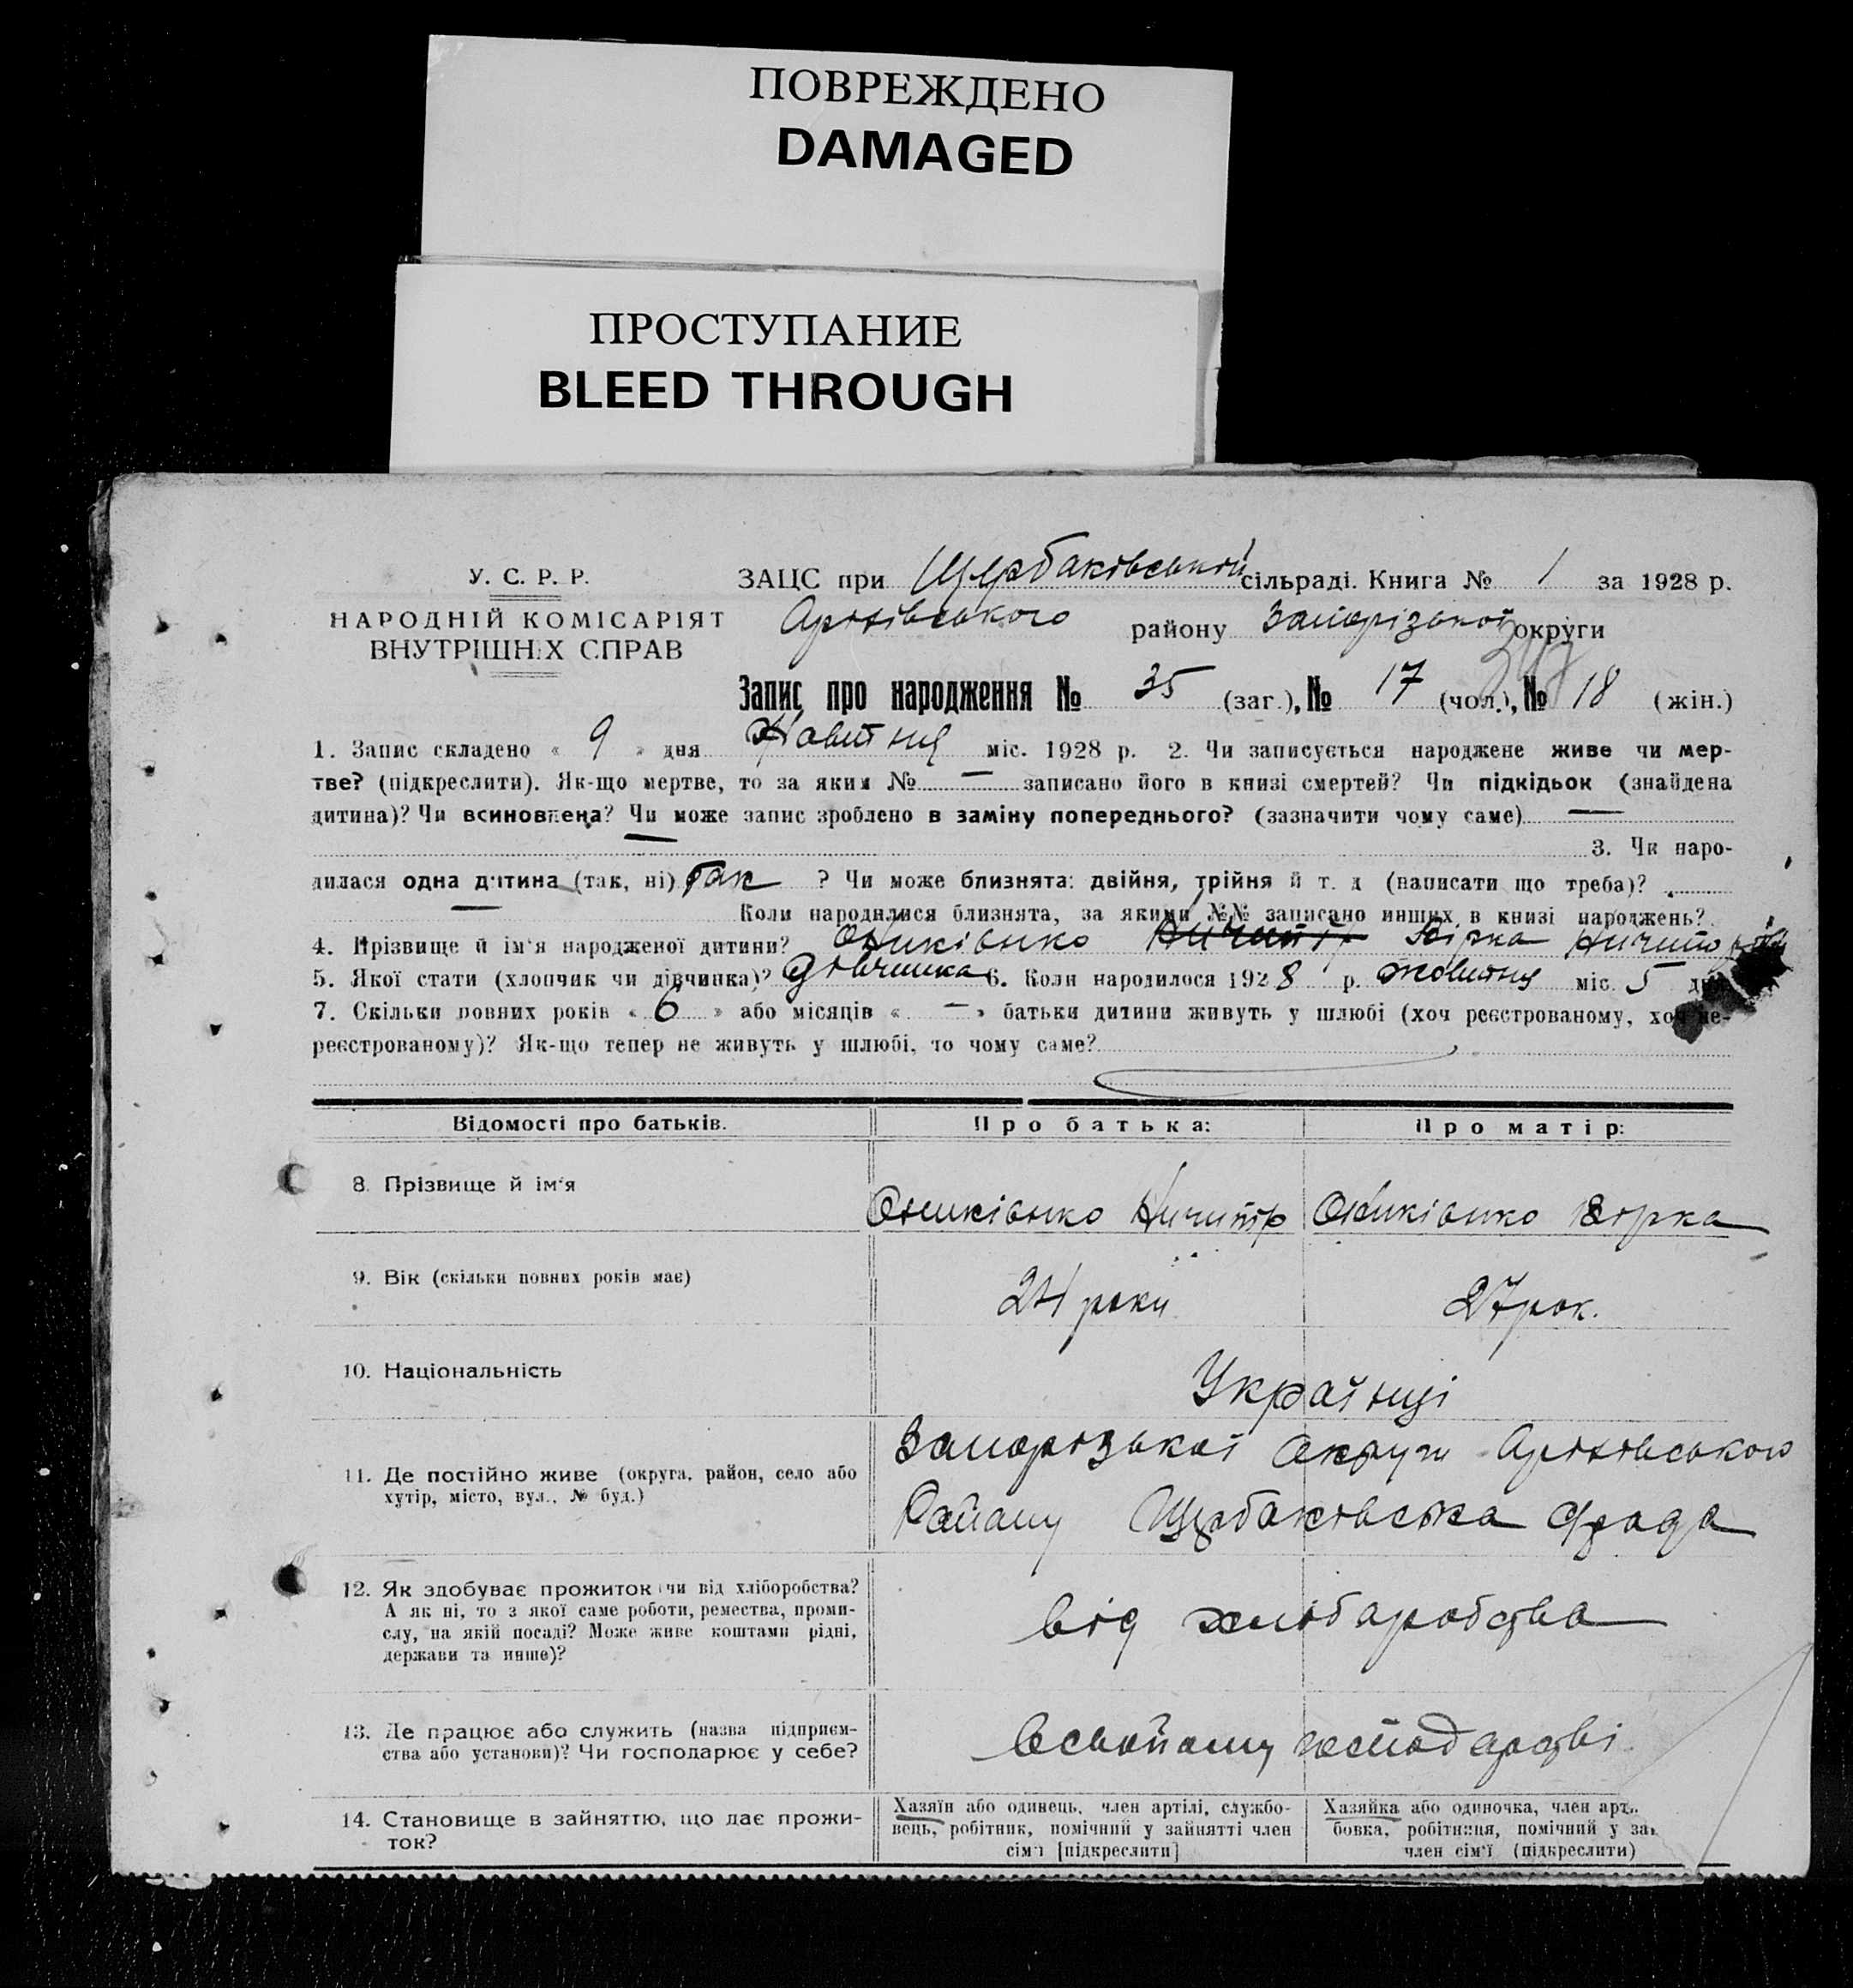 ПОВРЕЖДЕНО
DAMAGED
ПРОСТУПАНИЕ
BLEED THROUGH
У. С. Р. Р.
НАРОДНІЙ КОМІСАРІЯТ
ВНУТРІШНІХ СПРАВ
ЗАЦС при Щербаківській сільраді. Книга № 1 за 1928 р.
Оріхівського району Запорізької округи
Запис про народження № 35 (заг.), № 17 (чол.), № 18 (жін.)
1. Запис складено « 9 » дня Жовтня міс. 1928 р. 2. Чи записується народжене живе чи мер-
тве? (підкреслити). Як-що мертве, то за яким № — записано його в книзі смертей? Чи підкідьок (знайдена
дитина)? Чи всиновлена? Чи може запис зроблено в заміну попереднього? (зазначити чому саме) —
3. Чи наро-
дилася одна дитина (так, ні) Так ? Чи може близнята: двійня, трійня й т. д (написати що треба)?
— Коли народилися близнята, за якими №№ записано инших в книзі народжень?
4. Прізвище й ім'я народженої дитини?
5. Якої стати (хлопчик чи дівчинка)? дівчинка 6. Коли народилося 1928 р. жовтня міс. 5 дня
7. Скільки повних років « 6 » або місяців « — » батьки дитини живуть у шлюбі (хоч реєстрованому, хоч не-
реєстрованому)? Як-що тепер не живуть у шлюбі, то чому саме?
Відомості про батьків.
Про батька:
Про матір:
8. Прізвище й ім'я
Ничипір
9. Вік (скільки повних років має)
24 роки
27 рок.
10. Національність
Українці
11. Де постійно живе (округа, район, село або
хутір, місто, вул., № буд.)
Запорізької Округи Оріхівського
Району Щербаківська С/рада
12. Як здобуває прожиток (чи від хліборобства?
А як ні, то з якої саме роботи, ремества, проми-
слу, на якій посаді? Може живе коштами рідні,
держави та инше)?
від хліборобства
13. Де працює або служить (назва підприєм-
ства або установи)? Чи господарює у себе?
в свойому господарстві
14. Становище в зайняттю, що дає прожи-
ток?
Хазяїн або одинець, член артілі, службо-
вець, робітник, помічний у зайнятті член
сім'ї [підкреслити]
Хазяйка або одиночка, член арт.
бовка, робітниця, помічний у за
член сім'ї (підкреслити)